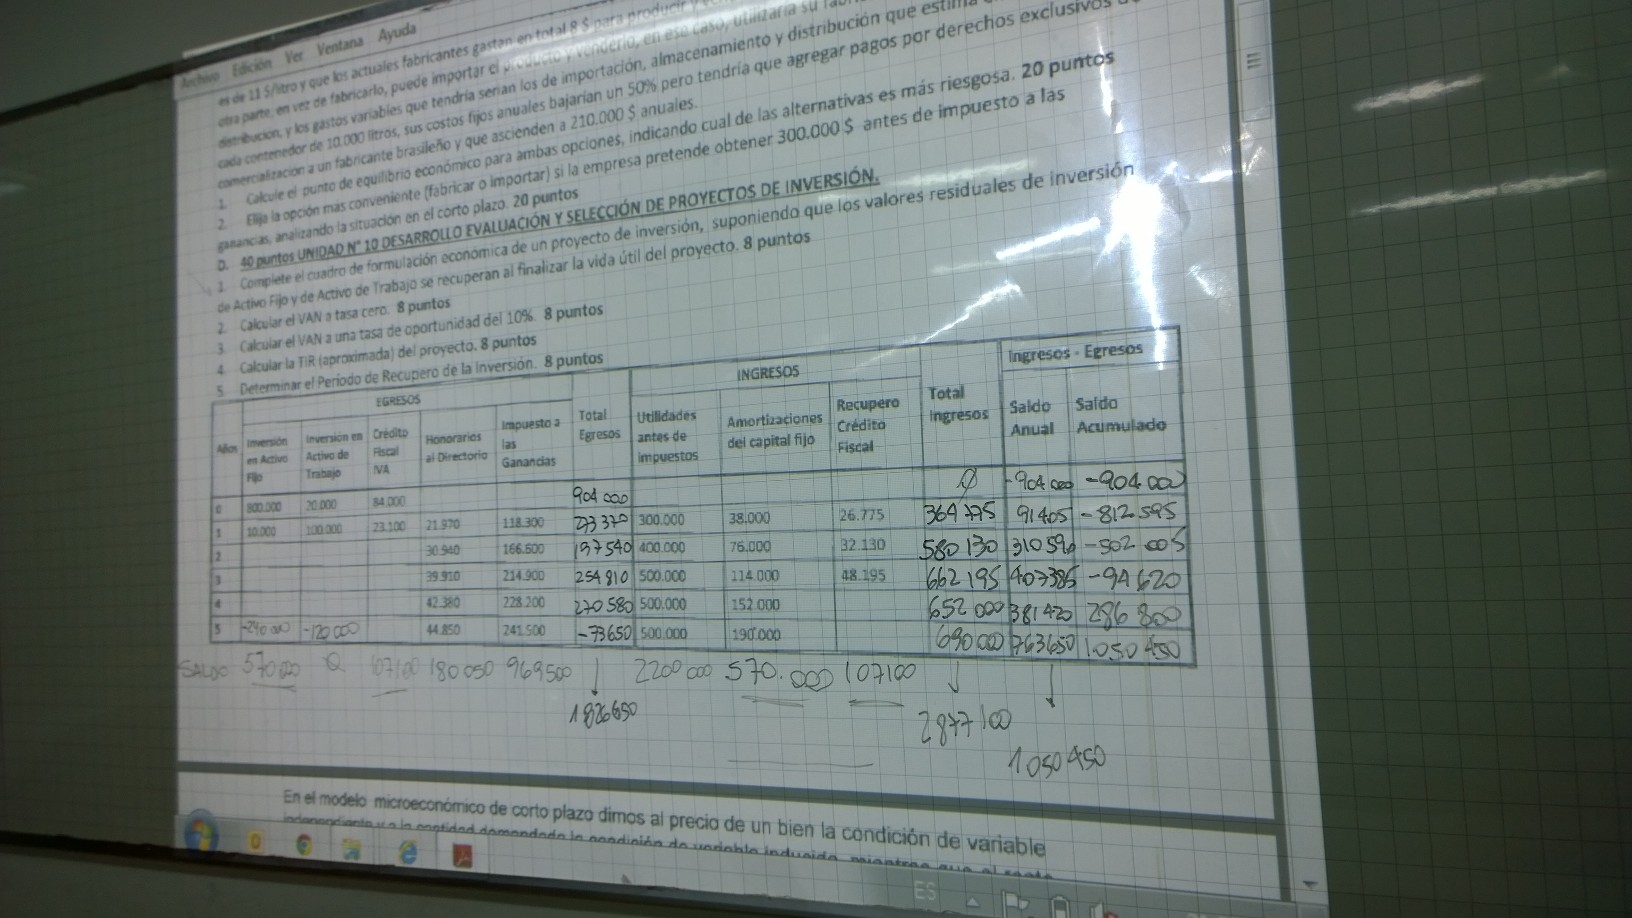 Archivo Edición Ver Ventana Ayuda
es de 11 $/litro y que los actuales fabricantes gastan en total 8 $ para producir y
otra parte, en vez de fabricarlo, puede importar el producto y venderlo, en ese caso, utilizaría su
distribucion, y los gastos variables que tendría serían los de importación, almacenamiento y distribución que estima
cada contenedor de 10.000 litros, sus costos fijos anuales bajarían un 50% pero tendría que agregar pagos por derechos exclusivos
comercializacion a un fabricante brasileño y que ascienden a 210.000 $ anuales.
1. Calcule el punto de equilibrio económico para ambas opciones, indicando cual de las alternativas es más riesgosa. 20 puntos
2. Elija la opción mas conveniente (fabricar o importar) si la empresa pretende obtener 300.000 $ antes de impuesto a las
ganancias, analizando la situación en el corto plazo. 20 puntos
D. 40 puntos UNIDAD N° 10 DESARROLLO EVALUACIÓN Y SELECCIÓN DE PROYECTOS DE INVERSIÓN.
1. Complete el cuadro de formulación económica de un proyecto de inversión, suponiendo que los valores residuales de inversión
de Activo Fijo y de Activo de Trabajo se recuperan al finalizar la vida útil del proyecto. 8 puntos
2. Calcular el VAN a tasa cero. 8 puntos
3. Calcular el VAN a una tasa de oportunidad del 10%. 8 puntos
4. Calcular la TIR (aproximada) del proyecto. 8 puntos
5. Determinar el Período de Recupero de la Inversión. 8 puntos
EGRESOS INGRESOS Ingresos - Egresos
Años Inversión en Activo Fijo Inversión en Activo de Trabajo Crédito Fiscal IVA Honorarios al Directorio Impuesto a las Ganancias Total Egresos Utilidades antes de impuestos Amortizaciones del capital fijo Recupero Crédito Fiscal Total Ingresos Saldo Anual Saldo Acumulado
0 800.000 20.000 84.000 904 000 Ø -904 000 -904 000
1 10.000 100.000 23.100 21.970 118.300 273 370 300.000 38.000 26.775 364 775 91405 -812 595
2 30.940 166.600 197 540 400.000 76.000 32.130 580 130 310 590 -502 005
3 39.910 214.900 254 810 500.000 114.000 48.195 662 195 407385 -94 620
4 42.380 228.200 270 580 500.000 152.000 652 000 381 420 286 800
5 -240 000 -120 000 44.850 241.500 -73650 500.000 190.000 690 000 763650 1.050 450
SALDO 570 000 0 107100 180 050 969 500 2200 000 570.000 107100
1 826650 2877 100
1 050 450
En el modelo microeconómico de corto plazo dimos al precio de un bien la condición de variable
independiente y a la cantidad demandada la condición de variable inducida, mientras que el resto
ES